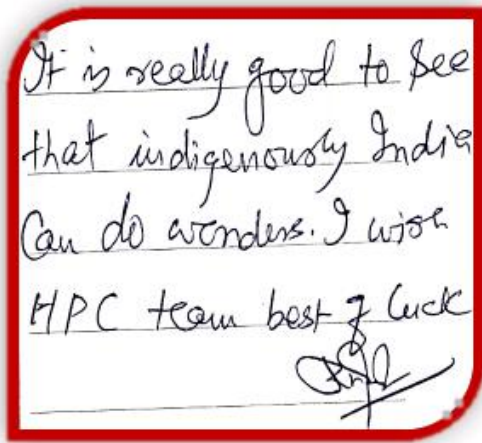 It is really good to see
that indigenously India
Can do wonders. I wish
HPC team best of luck